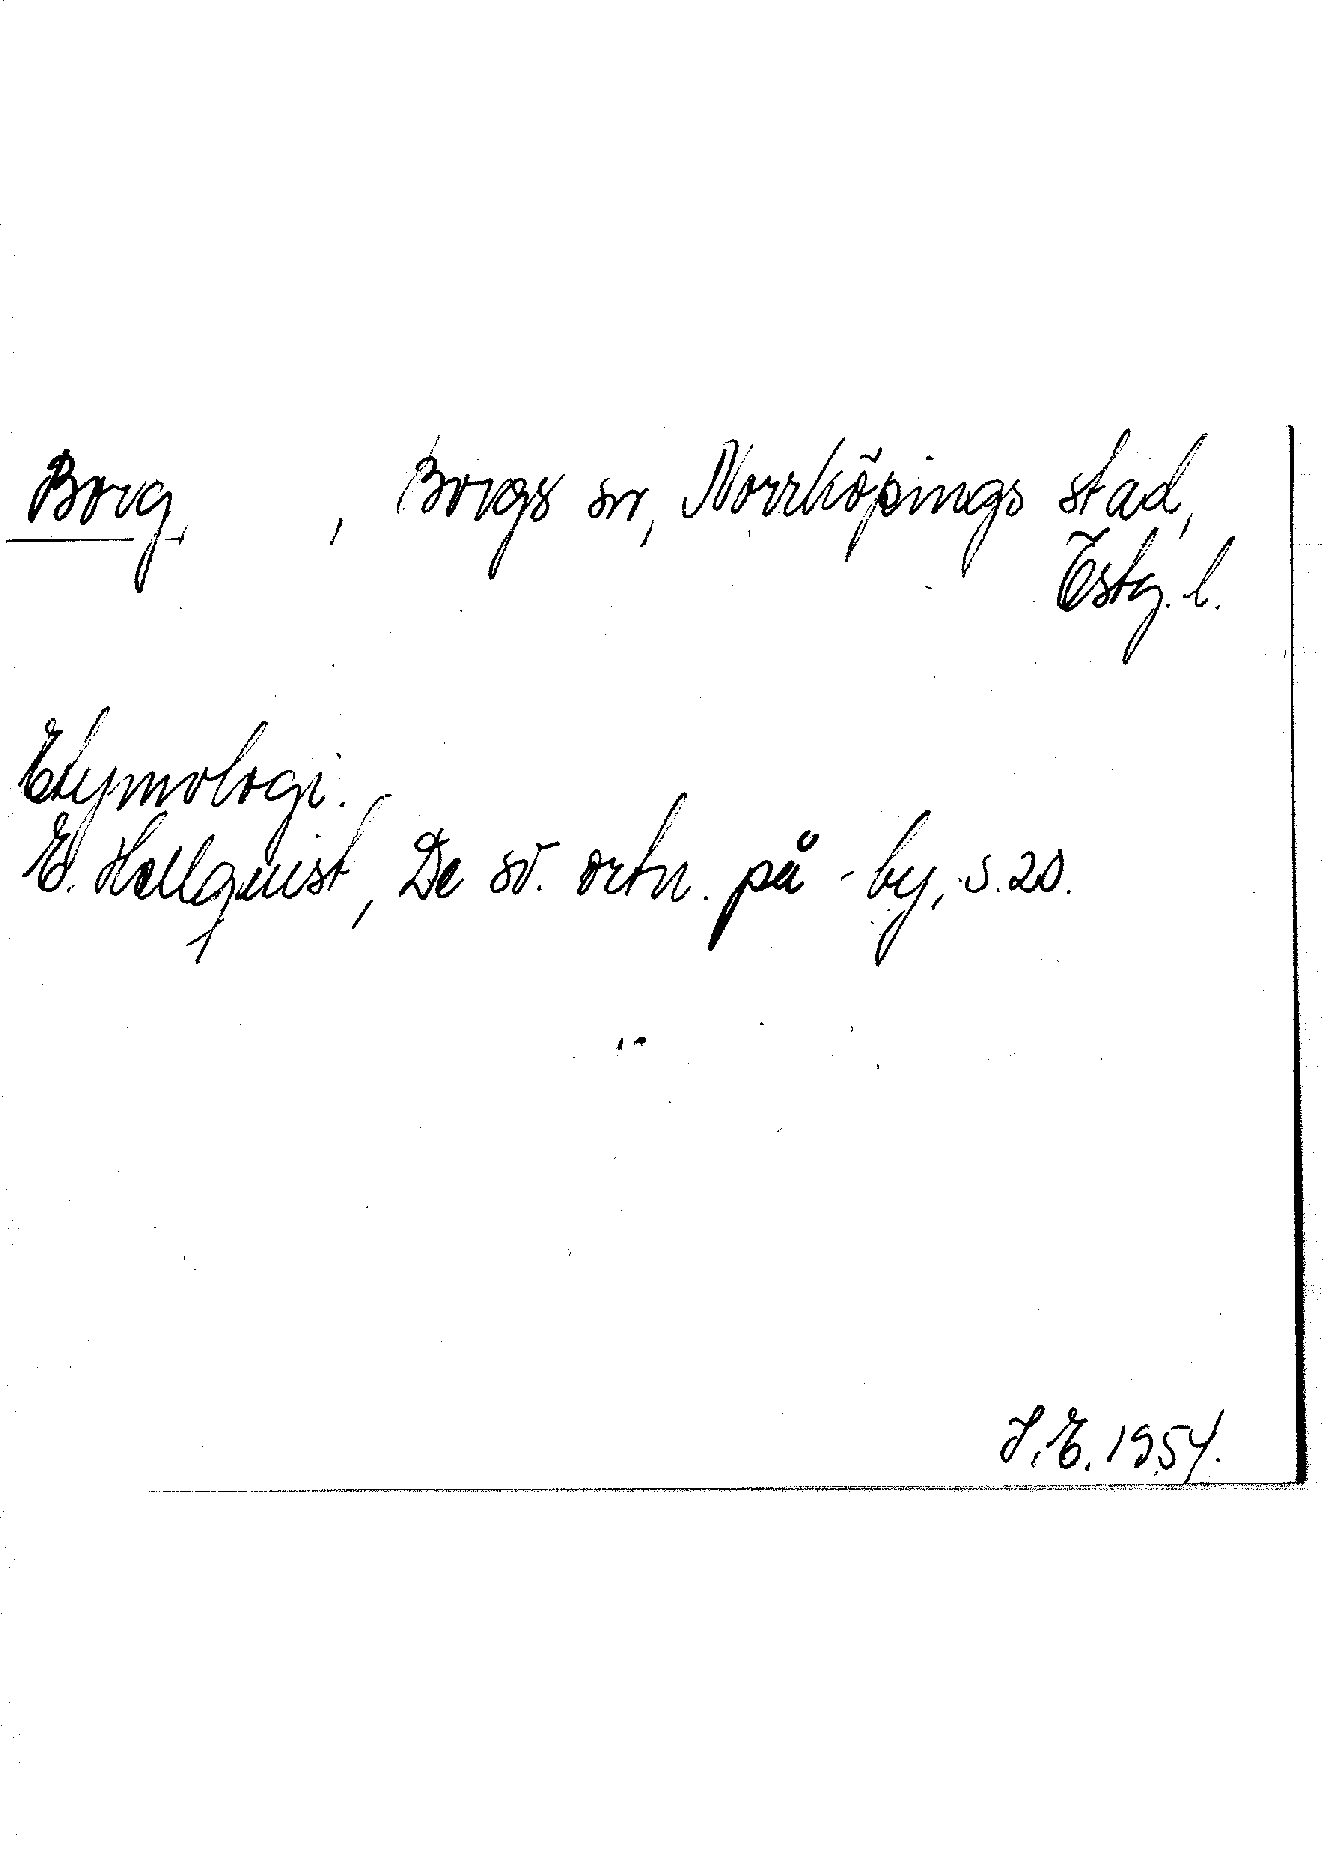 Borg, , Borgs sn, Norrköpings stad,
Östg. l.
Etymologi.
E. Hellquist, De sv. ortn. på -by, s. 20.
J. E. 1954.